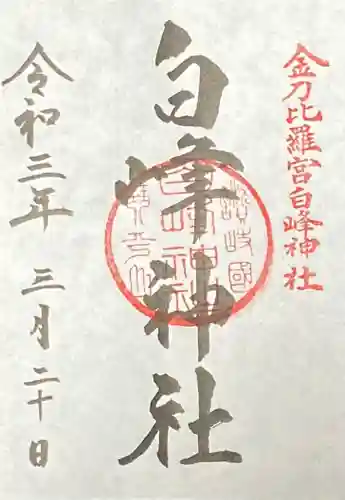 金刀比羅宮白峰神社
白峰神社
讃岐國
白峰神社
令和三年 三月二十日